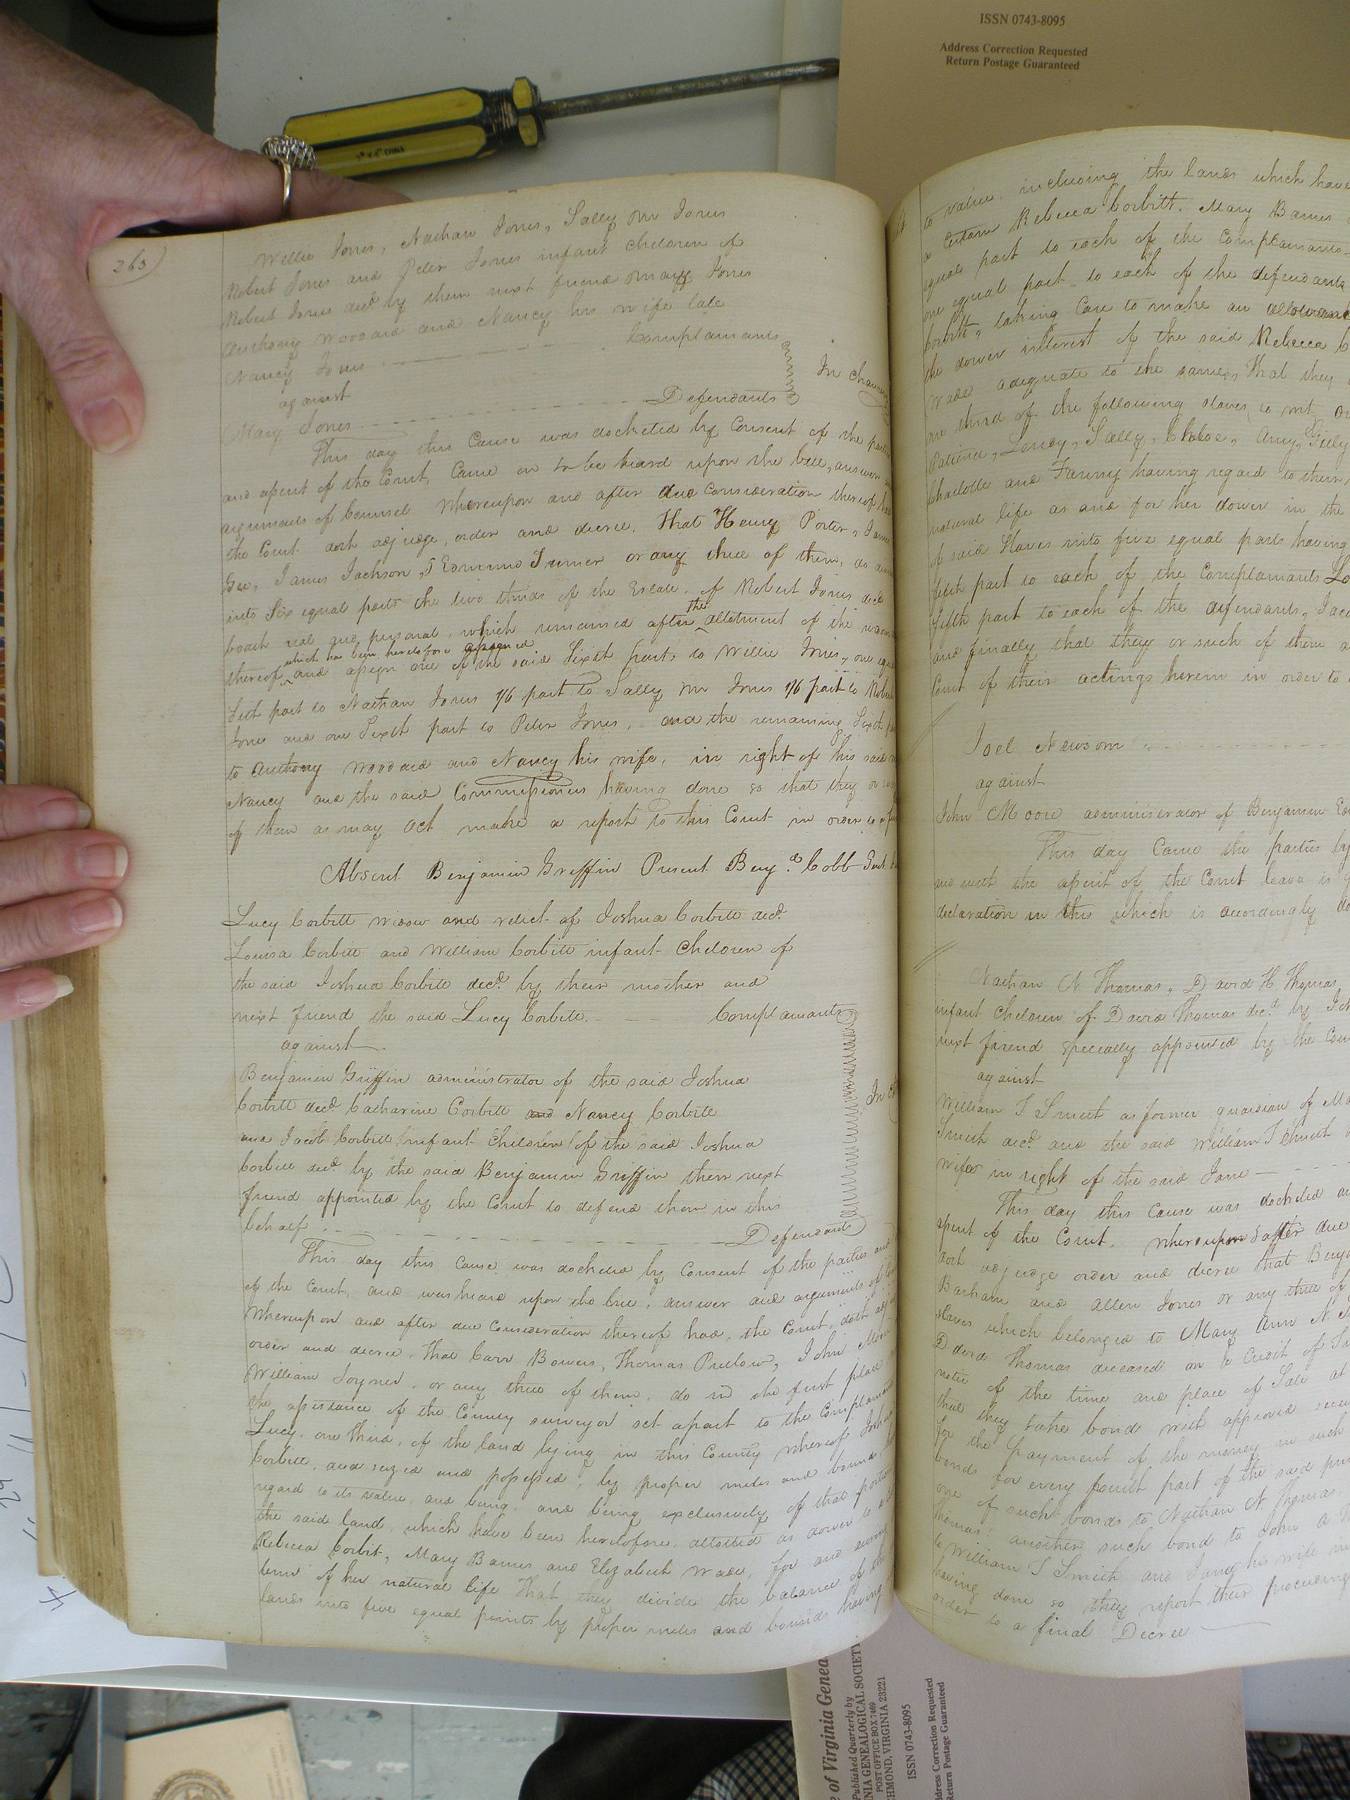 ISSN 0743-8095
Address Correction Requested
Return Postage Guaranteed
263
Willie Jones, Nathan Jones, Sally M Jones
Robert Jones and Peter Jones infant children of
Robert Jones decd by them next friend Mary Jones
Anthony Woodard and Nancy his wife late
Nancy Jones Complainants
against In
Mary Jones Defendants
This day this Cause was docketed by Consent of the
and assent of the Court, Came on to be heard upon the bill, answer
arguments of Counsel Whereupon and after due Consideration thereof
the Court doth adjudge, order and decree, That Henry Porter, James
Gee, James Jackson, & Edmund Turner or any three of them, do
into Six equal parts the two thirds of the Estate, of Robert Jones decd
boath real and personal, which remained after the allotment of the
which has been heretofore assigned
thereof and assign one of the said Sixth parts to Willie Jones, one
Sixth part to Nathan Jones 1/6 part to Sally M Jones 1/6 part to
Jones and one Sixth part to Peter Jones, and the remaining Sixth
to Anthony Woodard and Nancy his wife, in right of his said
Nancy and the said Commissioners having done so that they or
of them as may act make a report to this Court in order to a
Absent Benjamin Griffin Present Benj.a Cobb Gent
Lucy Corbitt widow and relict of Joshua Corbitt decd.
Louisa Corbitt and William Corbitt infant Children of
the said Joshua Corbitt decd. by their mother and
next friend the said Lucy Corbitt Complainants
against
Benjamin Griffin administrator of the said Joshua
Corbitt decd Catharine Corbitt and Nancy Corbitt In
and Jacob Corbitt infant Children of the said Joshua
Corbitt decd by the said Benjamin Griffin their next
friend appointed by the Court to defend them in this
behalf Defendants
This day this Cause was docketed by Consent of the parties and
of the Court, and was heard upon the bill, answer and arguments of
Whereupon and after due Consideration thereof had, the Court, doth
order and decree, that Carr Bowers, Thomas Pretlow, John
William Joyner, or any three of them, do in the first place
the assistance of the County surveyor set apart to the Complainant
Lucy, one third, of the land lying in this County whereof
Corbitt, died seized and possessed, by proper metes and bounds
regard to its value, and being and being exclusively of that portion
the said land, which have been heretofore allotted as dower to
Rebecca Corbit, Mary Barnes and Elizabeth Wade, for and during
term of her natural life That they divide the balance of the
lands into five equal points by proper metes and bounds having
to value, including the lands which have
Rebecca Corbitt, Mary Barnes
equal part to each of the Complainants
one equal part to each of the defendants
Corbitt, taking Care to make an allowance
the dower interest of the said Rebecca
Wade adequate to the same, That they
one third of the following slaves to wit,
Patience, Lucy, Sally, Chloe, Amy, Gilly
Charlotte and Fanny having regard to their
natural life as and for her dower in the
of said Slaves into five equal parts having
fifth part to each of the Complainants
fifth part to each of the defendants,
and finally that they or such of them
Court of their actings herein in order to
Joel Newsom
against
John Moore administrator of Benjamin
This day Came the parties by
and with the assent of the Court leave is
declaration in this which is accordingly
Nathan N Thomas, David H Thomas
infant Children of David Thomas decd. by
next friend specially appointed by the
against
William T Smith as former guardian of
Smith decd. and the said William T Smith
wife in right of the said Jane
This day this Cause was docketed
assent of the Court. Whereupon & after due
doth adjudge order and decree that
Barham and Allen Jones or any three of
slaves which belonged to Mary Ann
David Thomas deceased on a Credit of
notice of the time and place of Sale at
that they take bond with approved
for the payment of the money in such
bonds for every fourth part of the said
one of such bonds to Nathan N Thomas
Thomas, another such bond to John
to William T Smith and Jane his wife
having done so they report their
order to a final Decree
of Virginia
Published Quarterly by
GENEALOGICAL SOCIETY
POST OFFICE BOX 7469
VIRGINIA 23221
ISSN 0743-8095
Address Correction Requested
Return Postage Guaranteed